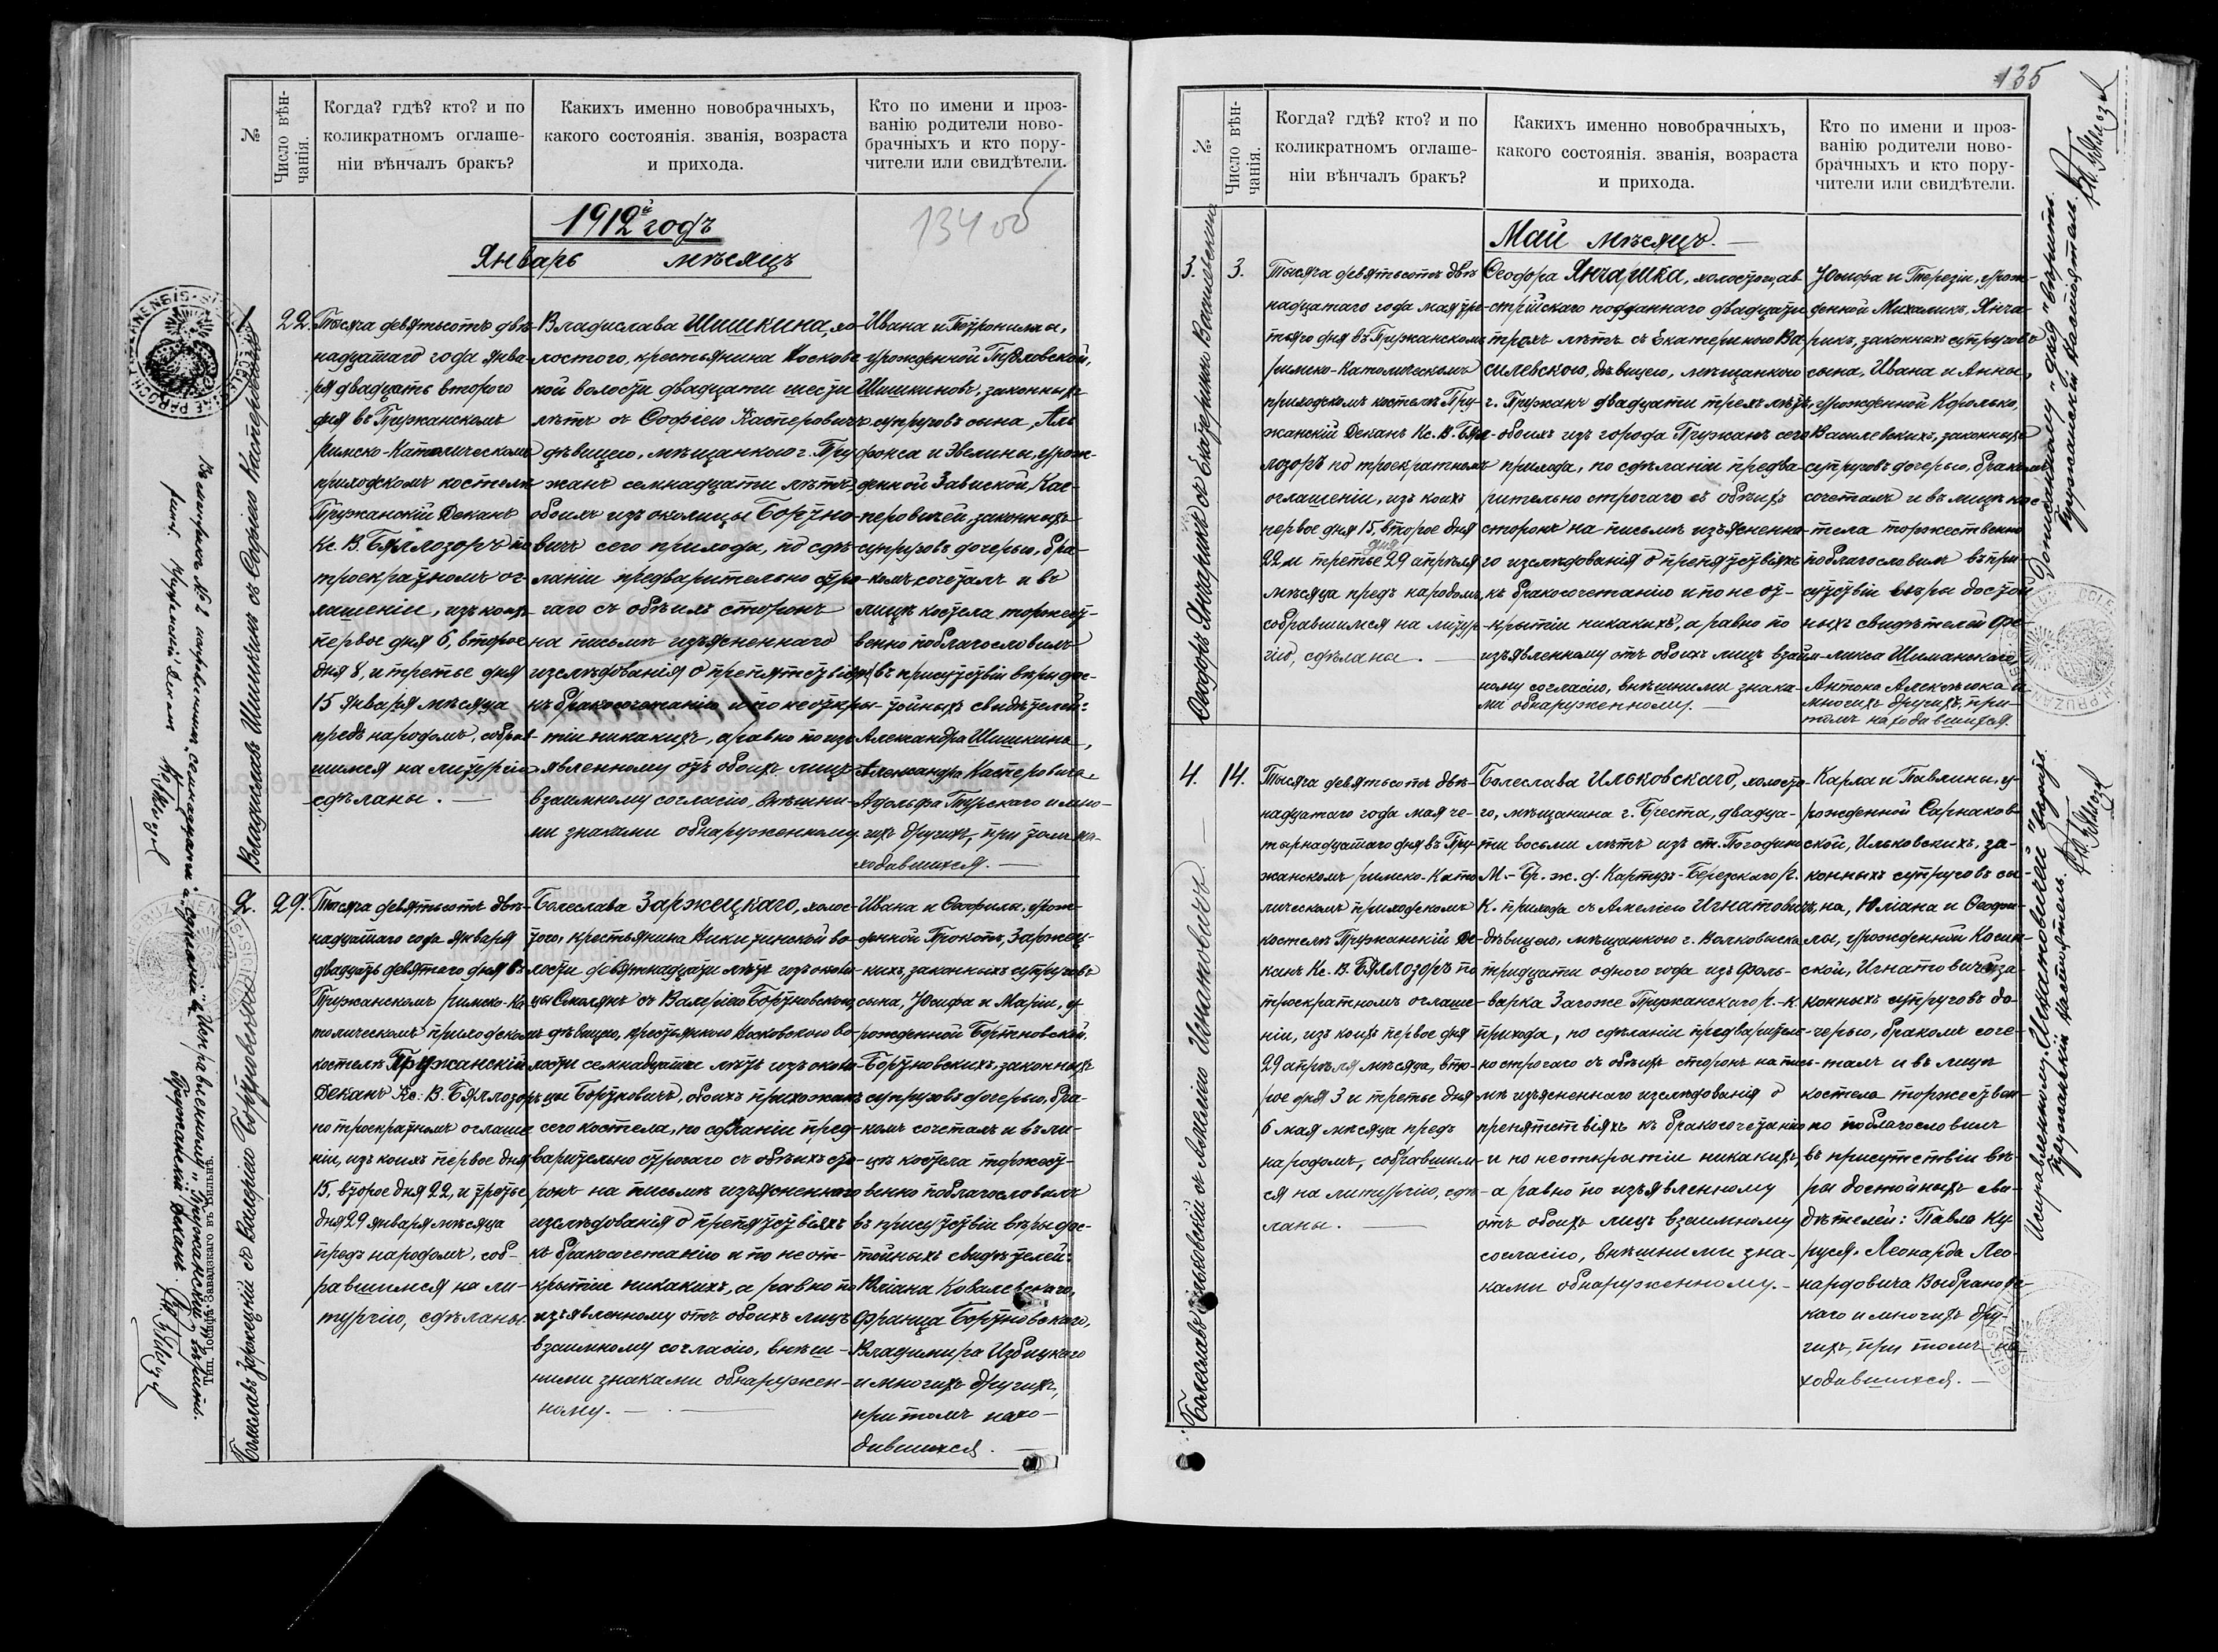 №
Число вѣн-
чанія.
Когда? гдѣ? кто? и по
коликратномъ оглаше-
ніи вѣнчалъ бракъ?
Какихъ именно новобрачныхъ,
какого состоянія. званія, возраста
и прихода.
Кто по имени и проз-
ванію родители ново-
брачныхъ и кто пору-
чители или свидѣтели.
1912й годъ
Январь мѣсяцъ
13400
1
Владиславъ Шишкинъ съ Софіею Касперовичъ
22.
Тысяча девятьсотъ двѣ-
надцатаго года янва-
ря двадцать второго
дня въ Пружанскомъ
Римско-Католическомъ
приходскомъ костелѣ
Пружанскій Деканъ
Кс. В. Бяллозоръ по
троекратномъ ог-
лашеніи, изъ коихъ
первое дня 6, второе
дня 8, и третье дня
15 января мѣсяца
предъ народомъ, собрав-
шимся на литургію
сдѣланы.
Владислава Шишкина, хо-
лостого, крестьянина Носковс-
кой волости двадцати шести
лѣтъ съ Софіею Касперовичъ
дѣвицею, мѣщанкою г. Пру-
жанъ семнадцати лѣтъ,
обоихъ изъ околицы Бортно-
вичъ сего прихода, по сдѣ-
ланіи предварительно стро-
гаго съ обѣихъ сторонъ
на письмѣ изъясненнаго
изслѣдованія о препятствіяхъ
къ бракосочетанію и по неоткры-
тіи никакихъ, а равно по изъ-
явленному отъ обоихъ лицъ
взаимному согласію, внѣшни-
ми знаками обнаруженному.
Ивана и Петронелы,
урожденной Гидловской,
Шишкиновъ, законныхъ
супруговъ сына, Аль-
фонса и Эвелины, урож-
денной Завиской, Кас-
перовичей, законныхъ
супруговъ дочерью, бра-
комъ сочеталъ и въ
лицѣ костела торжест-
венно поблагословилъ
въ присутствіи вѣры дос-
тойныхъ свидѣтелей:
Александра Шишкина,
Александра Касперовича,
Адольфа Турскаго и мно-
гихъ другихъ, при томъ на-
ходившихся.
2.
Болеславъ Заржецкій съ Валеріею Бортновскою
29.
Тысяча девятьсотъ двѣ-
надцатаго года января
двадцать девятаго дня въ
Пружанскомъ римско-ка-
толическомъ приходскомъ
костелѣ Пружанскій
Деканъ Кс. В. Бяллозоръ
по троекратномъ оглаше-
ніи, изъ коихъ первое дня
15, второе дня 22, и третье
дня 29 января мѣсяца
предъ народомъ, соб-
равшимся на ли-
тургію, сдѣланы.
Болеслава Заржецкаго, холос-
того, крестьянина Микитинской во-
лости девятнадцати лѣтъ изъ околи-
цы Смолянъ съ Валеріею Бортновскою,
дѣвицею, крестьянкою Носковской во-
лости семнадцати лѣтъ изъ околи-
цы Бортновичъ, обоихъ прихожанъ
сего костела, по сдѣланіи пред-
варительно строгаго съ обѣихъ сто-
ронъ на письмѣ изъясненнаго
изслѣдованія о препятствіяхъ
къ бракосочетанію и по неот-
крытіи никакихъ, а равно по
изъявленному отъ обоихъ лицъ
взаимному согласію, внѣш-
ними знаками обнаружен-
ному.
Ивана и Теофили, урож-
денной Прокопъ, Заржец-
кихъ, законныхъ супруговъ
сына, Юсифа и Маріи, у-
рожденной Бортновской,
Бортновскихъ, законныхъ
супруговъ дочерью, бра-
комъ сочеталъ и въ ли-
цѣ костела торжест-
венно поблагословилъ
въ присутствіи вѣры дос-
тойныхъ свидѣтелей:
Юліана Ковалевскаго,
Франца Бортновскаго,
Владимира Избицкаго
и многихъ другихъ,
притомъ нахо-
дившихся.
Тип. Іосифа Завадзкаго въ Вильнѣ.
135
№
Число вѣн-
чанія.
Когда? гдѣ? кто? и по
коликратномъ оглаше-
ніи вѣнчалъ бракъ?
Какихъ именно новобрачныхъ,
какого состоянія. званія, возраста
и прихода.
Кто по имени и проз-
ванію родители ново-
брачныхъ и кто пору-
чители или свидѣтели.
Май мѣсяцъ.
3.
Ѳеодоръ Янчарикъ съ Екатериною Василевскою
3.
Тысяча девятьсотъ двѣ-
надцатаго года мая тре-
тьяго дня въ Пружанскомъ
римско-Католическомъ
приходскомъ костелѣ Пру-
жанскій Деканъ Кс. В. Бял-
лозоръ по троекратномъ
оглашеніи, изъ коихъ
первое дня 15, второе дня
22 и третье дня 29 апрѣля
мѣсяца предъ народомъ,
собравшимся на литур-
гію, сдѣланы.
Ѳеодора Янчарика, холостого, ав-
стрійскаго подданнаго двадцати
трехъ лѣтъ съ Екатериною Ва-
силевскою, дѣвицею, мѣщанкою
г. Пружанъ двадцати трехъ лѣтъ,
обоихъ изъ города Пружанъ сего
прихода, по сдѣланіи предва-
рительно строгаго съ обѣихъ
сторонъ на письмѣ изъясненна-
го изслѣдованія о препятствіяхъ
къ бракосочетанію и по не от-
крытіи никакихъ, а равно по
изъявленному отъ обоихъ лицъ взаим-
ному согласію, внѣшними знака-
ми обнаруженному.
Юсифа и Терезіи, урож-
денной Михаликъ, Янча-
рикъ, законныхъ супруговъ
сына, Ивана и Анны,
урожденной Королько,
Василевскихъ, законныхъ
супруговъ дочерью, бракомъ
сочеталъ и въ лицѣ кос-
тела торжественно
поблагословилъ въ при-
сутствіи вѣры достой-
ныхъ свидѣтелей: Фе-
ликса Шиманскаго,
Антона Алексѣюка и
многихъ другихъ, при-
томъ находившихся.
4.
Болеславъ Ильковскій съ Амеліею Игнатовичъ
14.
Тысяча девятьсотъ двѣ-
надцатаго года мая че-
тырнадцатаго дня въ Пру-
жанскомъ римско-Като-
лическомъ приходскомъ
костелѣ Пружанскій Де-
канъ Кс. В. Бяллозоръ по
троекратномъ оглаше-
ніи, изъ коихъ первое дня
29 апрѣля мѣсяца, вто-
рое дня 3 и третье дня
6 мая мѣсяца предъ
народомъ, собравшим-
ся на литургію, сдѣ-
ланы.
Болеслава Ильковскаго, холосто-
го, мѣщанина г. Бреста, двадца-
ти восьми лѣтъ изъ ст. Погодино
М.-Бр. ж. д. Картузъ-Березскаго р.
К. прихода съ Амеліею Игнатовичъ,
дѣвицею, мѣщанкою г. Волковыска
тридцати одного года изъ фоль-
варка Загоже Пружанскаго р.-к.
прихода, по сдѣланіи предваритель-
но строгаго съ обѣихъ сторонъ на пись-
мѣ изъясненнаго изслѣдованія о
препятствіяхъ къ бракосочетанію
и по неоткрытіи никакихъ,
а равно по изъявленному
отъ обоихъ лицъ взаимному
согласію, внѣшними зна-
ками обнаруженному.
Карла и Павлины, у-
рожденной Сарнаков-
ской, Ильковскихъ, за-
конныхъ супруговъ сы-
на, Юліана и Теофи-
лы, урожденной Косин-
ской, Игнатовичей за-
конныхъ супруговъ до-
черью, бракомъ соче-
талъ и въ лицѣ
костела торжествен-
но поблагословилъ
въ присутствіи вѣ-
ры достойныхъ сви-
дѣтелей: Павла Ку-
руся, Леонарда Лео-
нардовича Выбрановс-
каго и многихъ дру-
гихъ, при томъ на-
ходившихся.
Дописанному "дня" вѣрить.
Пружанскій Настоятель
Исправленному "Игнатовичей" вѣрить.
Пружанскій Настоятель.